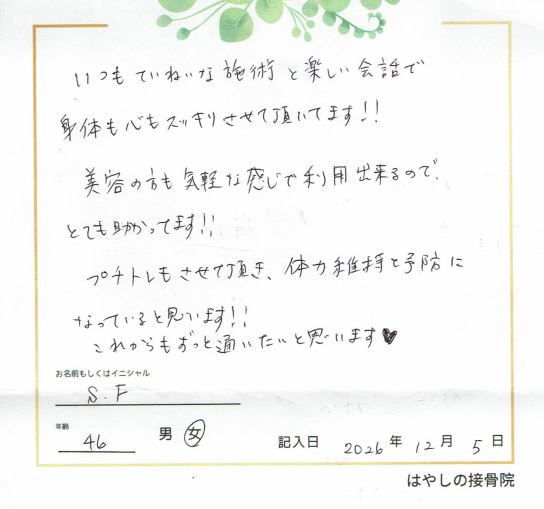 いつもていねいな施術と楽しい会話で
身体も心もスッキリさせて頂いてます!!
美容の方も気軽な感じで利用出来るので、
とても助かってます!!
プチトレもさせて頂き、体力維持と予防に
なっていると思います!!
これからもずっと通いたいと思います♥
お名前もしくはイニシャル
S.F
年齢 46 男 女 記入日 2026年 12月 5日
はやしの接骨院